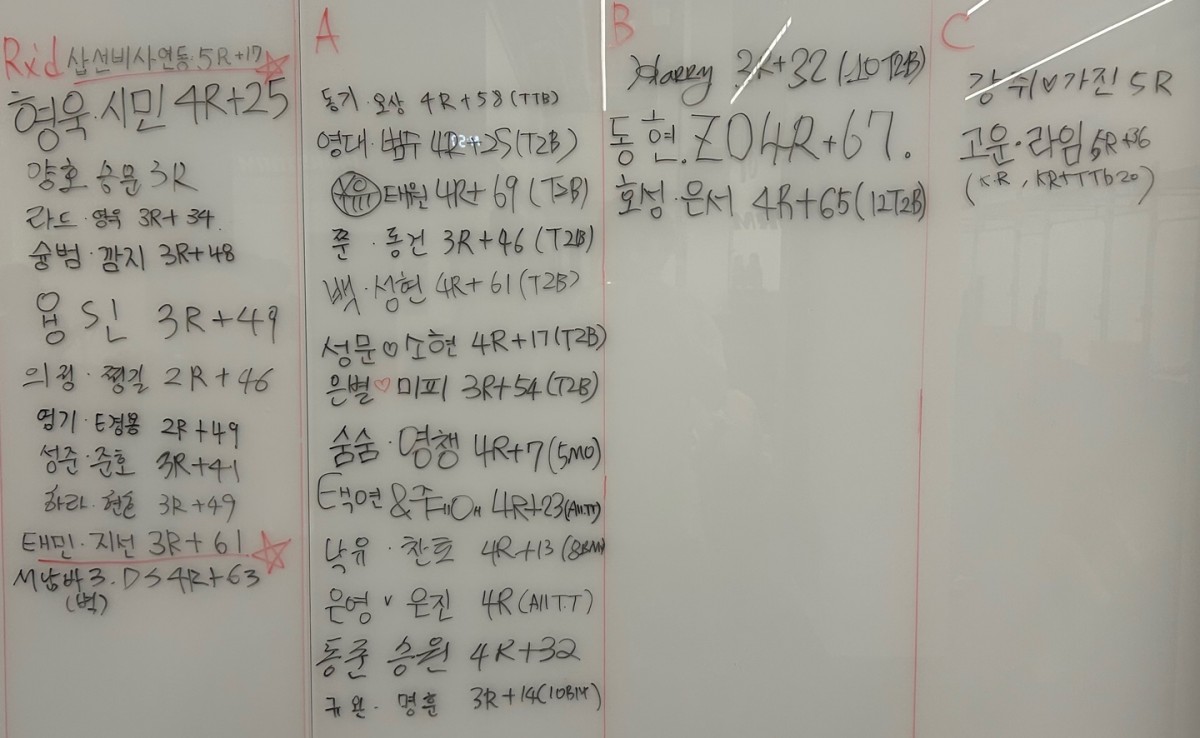 Rx'd
삽선비사연동 5R+17
형욱·시민 4R+25
양호 승문 3R
라드·영욱 3R+34.
슝범·깜지 3R+48
용 S인 3R+49
의광·쩡길 2R+46
엄기·E경용 2R+49
성준·준호 3R+41
하라·현손 3R+49
태민·지선 3R+61
서남바3·DS 4R+63
(벽)
A
동기·오상 4R+58(TTB)
영대·범수 4R+25(T2B)
태원 4R+69 (T2B)
쭌·동건 3R+46 (T2B)
백·성현 4R+61(T2B)
성문♡소현 4R+17(T2B)
은별♡미피 3R+54(T2B)
숨숨·명챙 4R+7(5MO)
E백연&주 4R+23(AllT.T)
낙유·찬토 4R+13
은영 v 은진 4R(AllT.T)
동준 승원 4R+32
규완·명훈 3R+14
B
Harry 3R+32(10T2B)
동현.ZO 4R+67.
호성·은서 4R+65(12T2B)
C
강쉬♡가진 5R
고운·라임 5R+36
(KR, KR+TTb20)